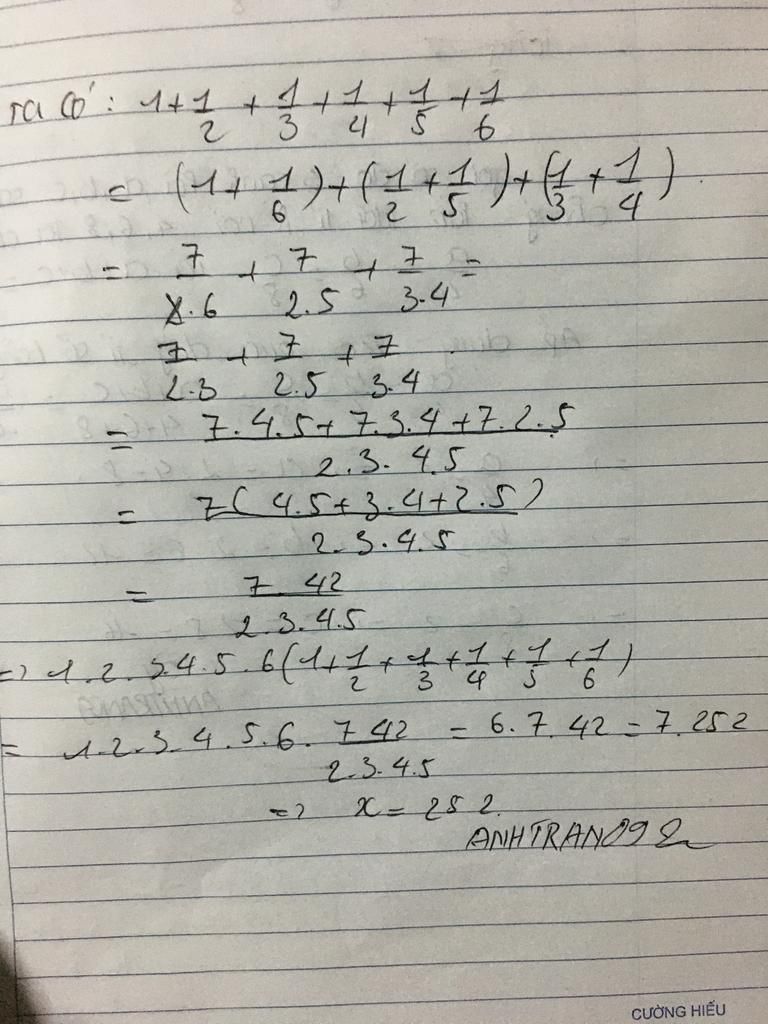 Ta có: 1 + 1/2 + 1/3 + 1/4 + 1/5 + 1/6
= (1 + 1/6) + (1/2 + 1/5) + (1/3 + 1/4)
= 7/1.6 + 7/2.5 + 7/3.4 =
7/2.3 + 7/2.5 + 7/3.4
= 7.4.5 + 7.3.4 + 7.2.5 / 2.3.4.5
= 7(4.5 + 3.4 + 2.5) / 2.3.4.5
= 7.42 / 2.3.4.5
=> 1.2.3.4.5.6(1 + 1/2 + 1/3 + 1/4 + 1/5 + 1/6)
= 1.2.3.4.5.6. 7.42 / 2.3.4.5 = 6.7.42 = 7.252
=> x = 252.
ANHTRAN092
CƯỜNG HIẾU